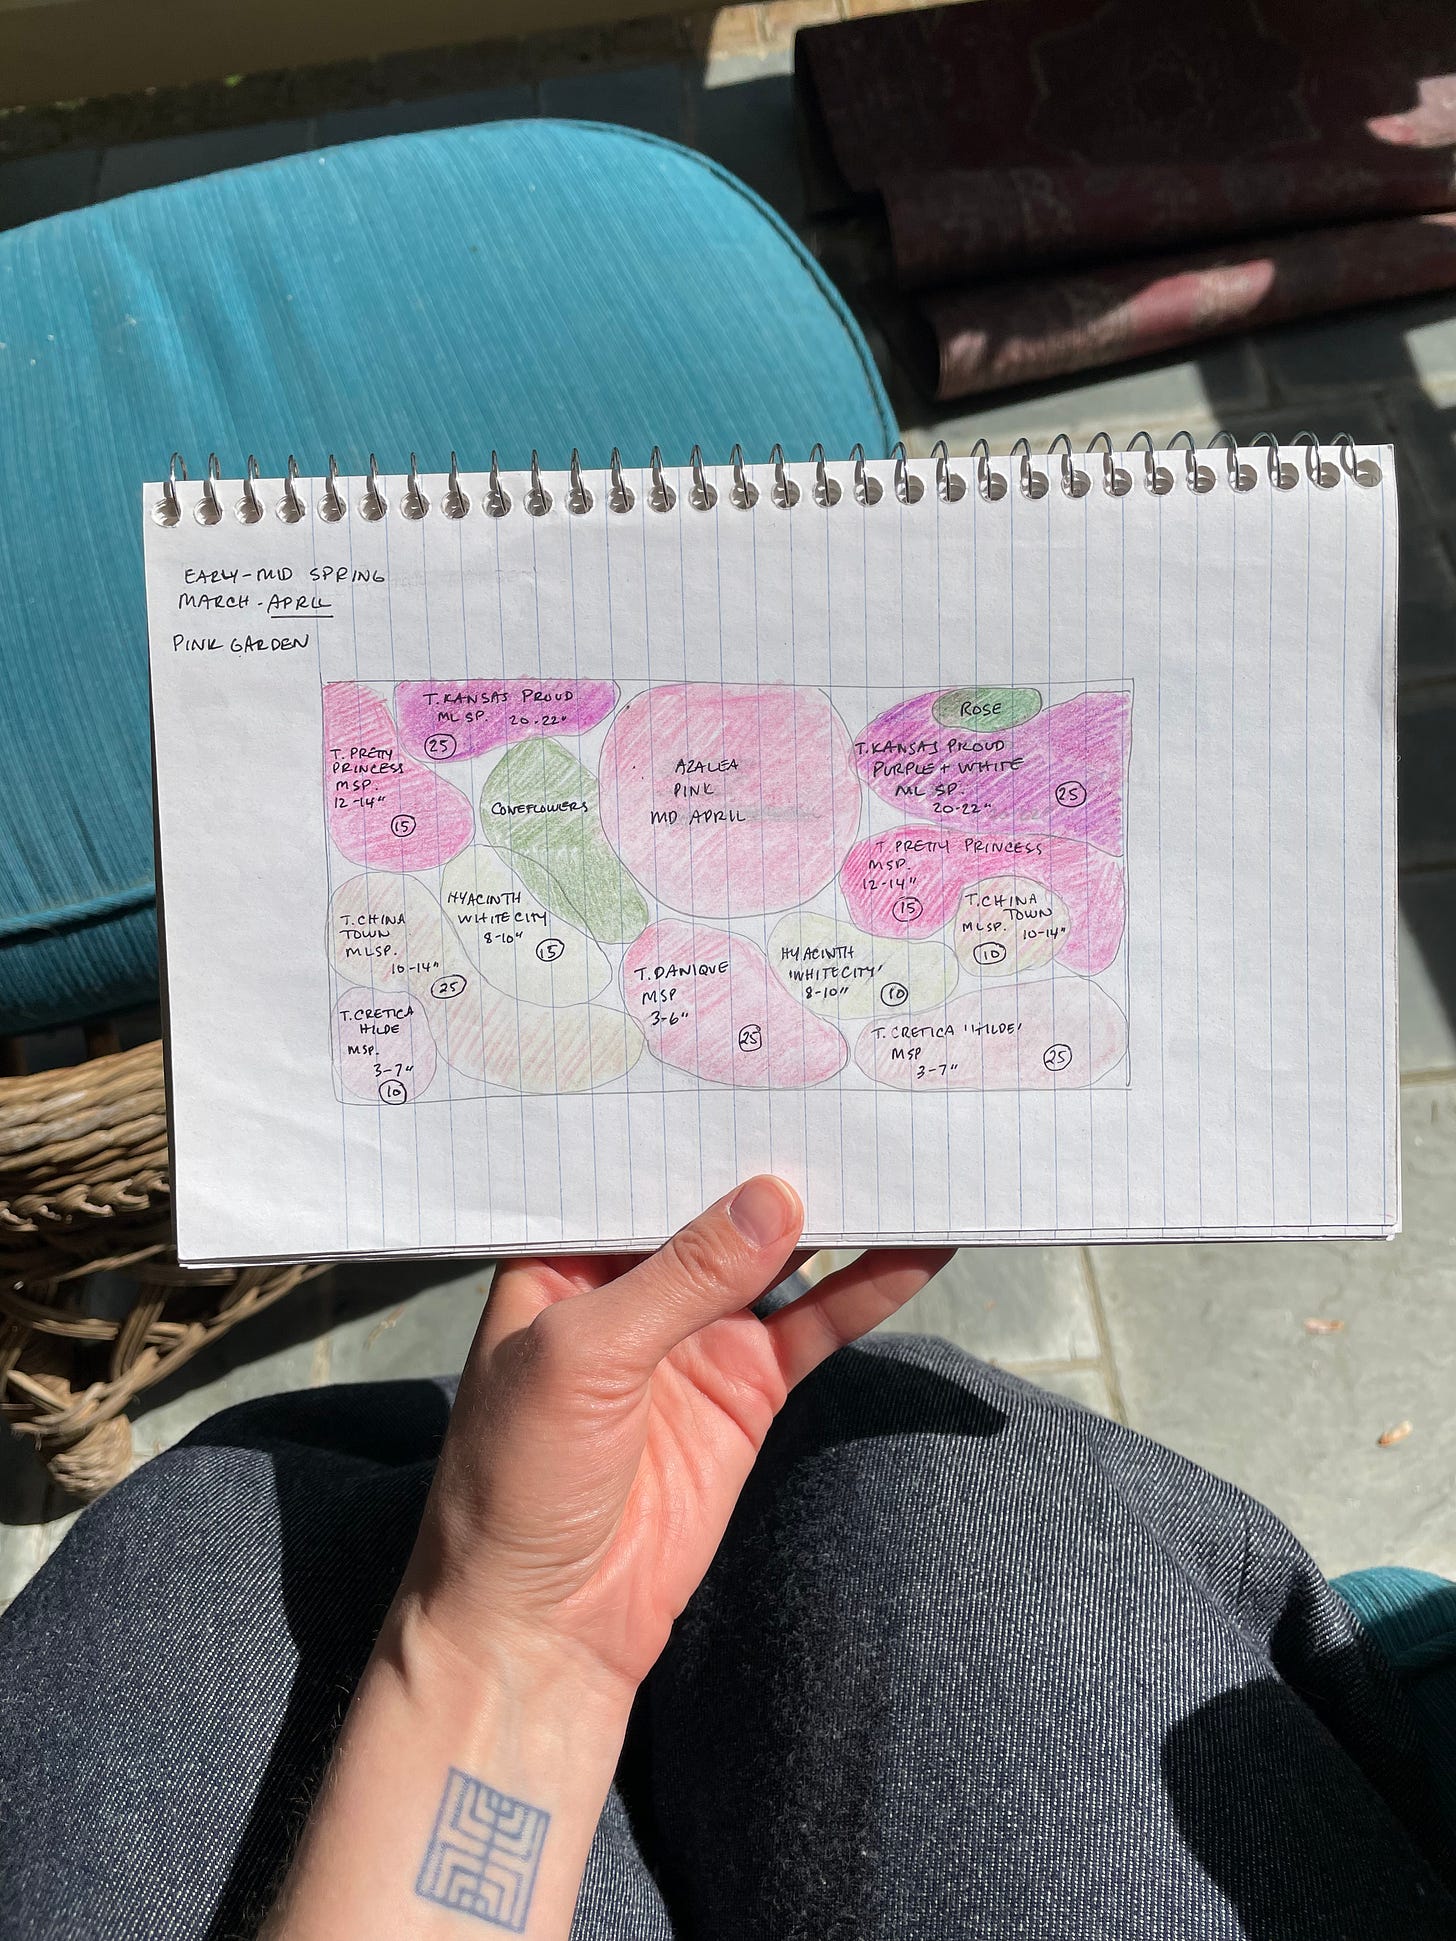 EARLY-MID SPRING
MARCH-APRIL
PINK GARDEN
T. KANSAS PROUD
ML SP. 20-22"
25
T. PRETTY
PRINCESS
MSP.
12-14"
15
CONEFLOWERS
AZALEA
PINK
MID APRIL
ROSE
T. KANSAS PROUD
PURPLE + WHITE
ML SP.
20-22"
25
T. PRETTY PRINCESS
MSP.
12-14"
15
T. CHINA
TOWN
MLSP. 10-14"
10
T. CHINA
TOWN
MLSP.
10-14"
25
HYACINTH
WHITE CITY
8-10"
15
T. DANIQUE
MSP
3-6"
25
HYACINTH
'WHITE CITY'
8-10"
10
T. CRETICA
HILDE
MSP.
3-7"
10
T. CRETICA 'HILDE'
MSP
3-7"
25